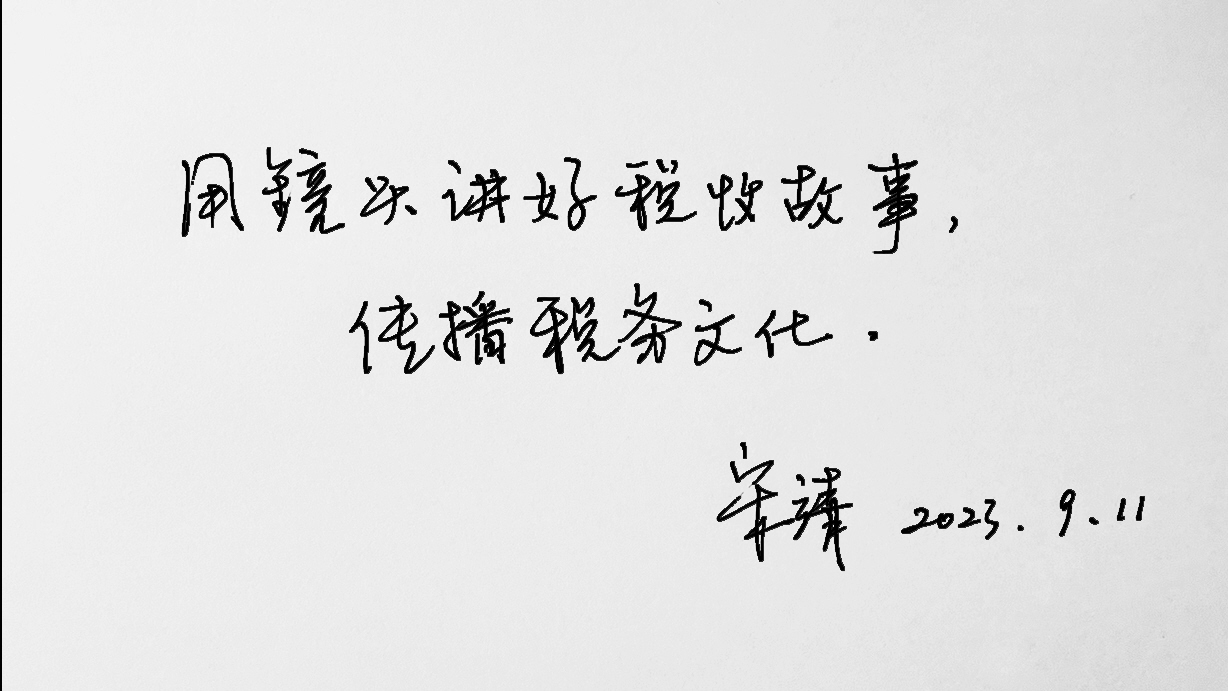 用镜头讲好税收故事,
传播税务文化.
宋靖 2023.9.11